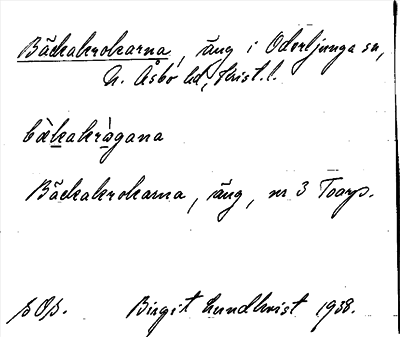 Bäckakrokarna, äng i Oderljunga sn,
N. Åsbo hd, Krist. l.
bækakràgana
Bäckakrokarna, äng, nr 3 Toarp.
p Op.
Birgit Lundkvist 1938.